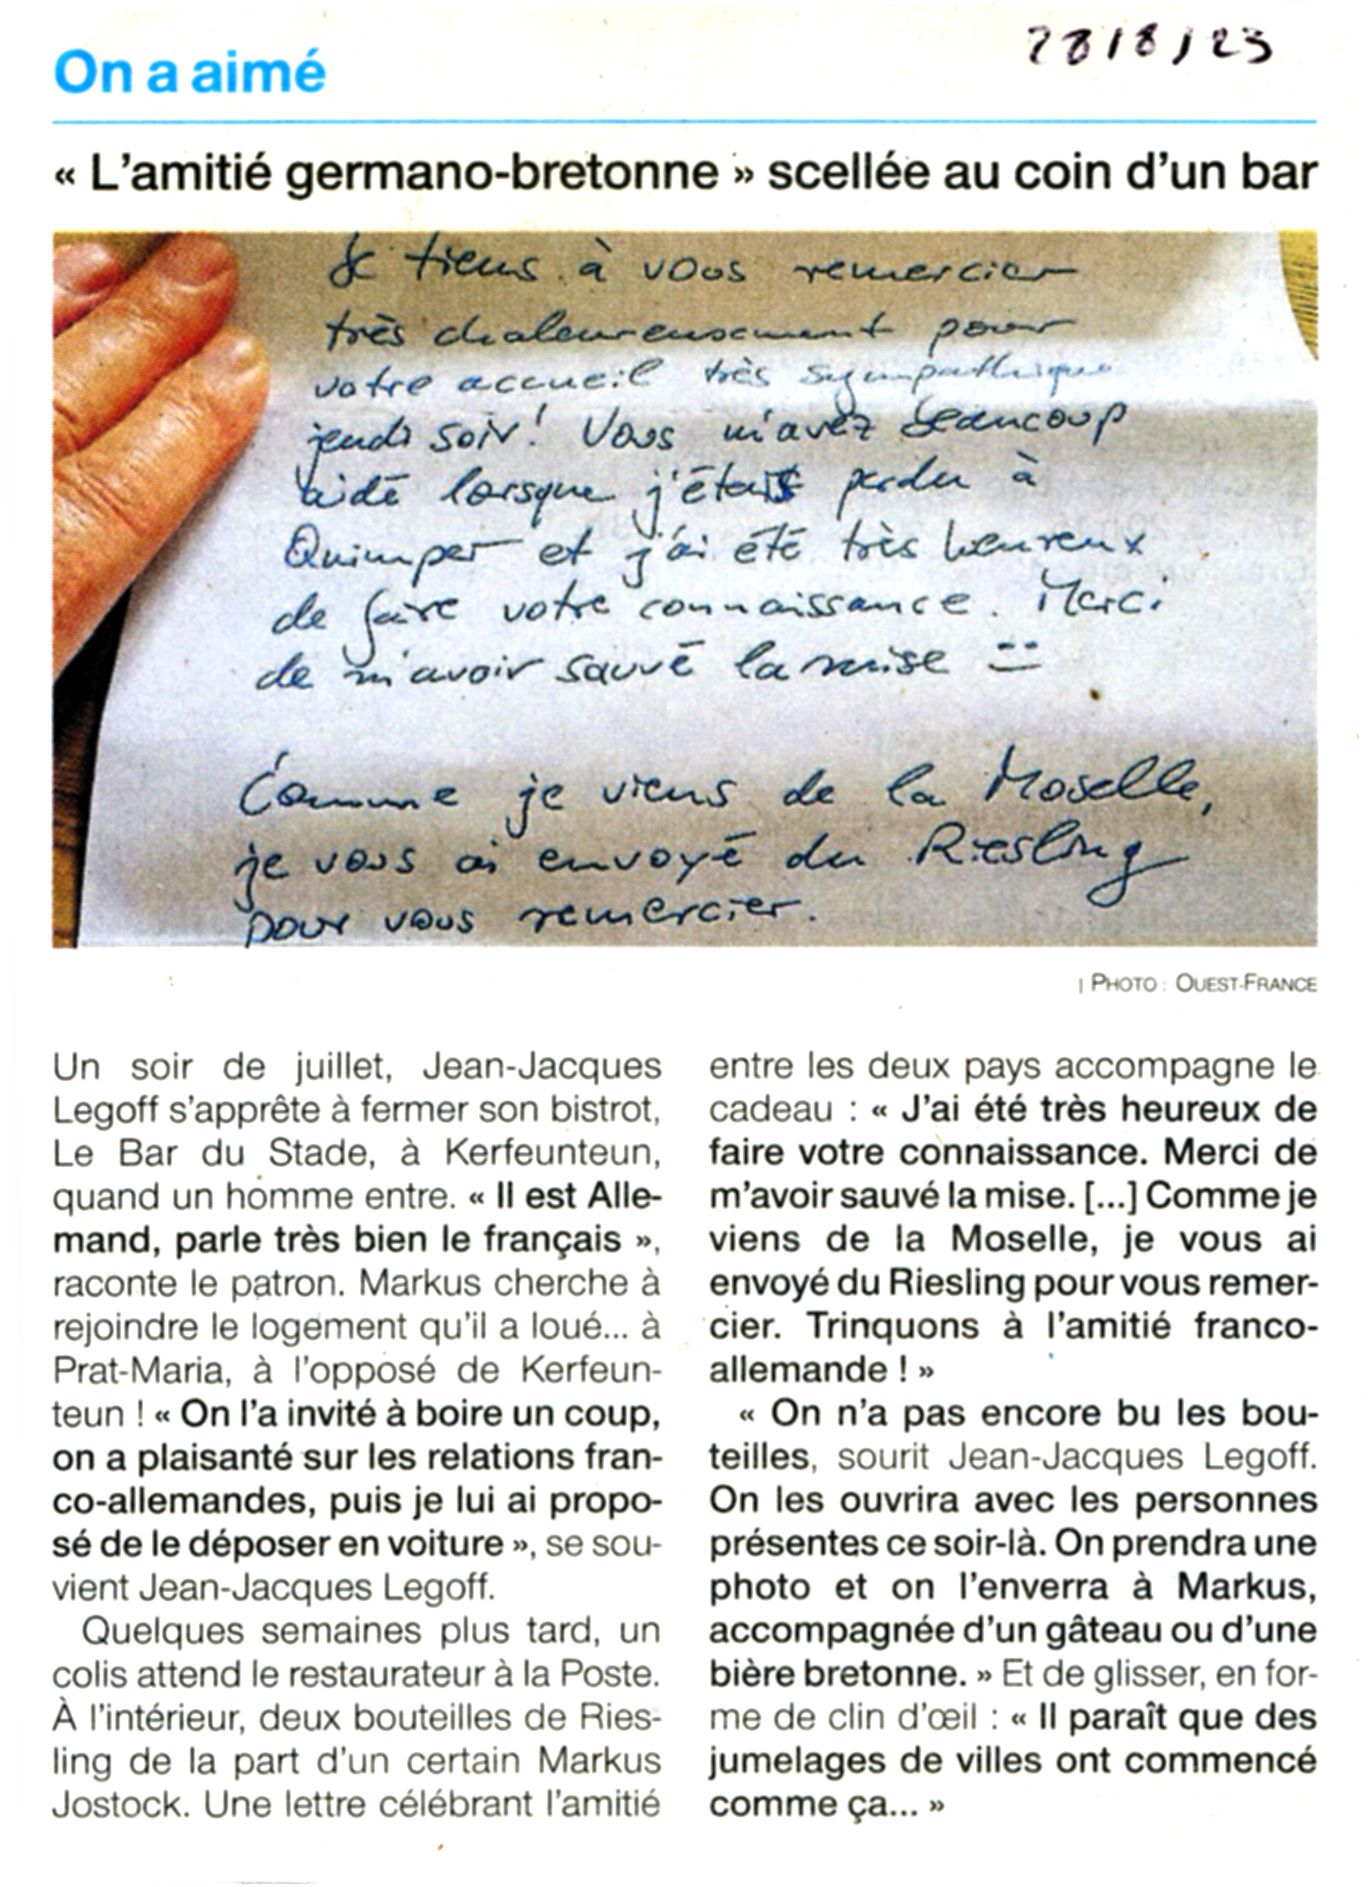 28/8/23
On a aimé
« L'amitié germano-bretonne » scellée au coin d'un bar
Je tiens à vous remercier
très chaleureusement pour
votre accueil très sympathique
jeudi soir! Vous m'avez beaucoup
aidé lorsque j'étais perdu à
Quimper et j'ai été très heureux
de faire votre connaissance. Merci
de m'avoir sauvé la mise
Comme je viens de la Moselle,
je vous ai envoyé du Riesling
pour vous remercier.
| PHOTO : OUEST-FRANCE
Un soir de juillet, Jean-Jacques
Legoff s'apprête à fermer son bistrot,
Le Bar du Stade, à Kerfeunteun,
quand un homme entre. « Il est Alle-
mand, parle très bien le français »,
raconte le patron. Markus cherche à
rejoindre le logement qu'il a loué... à
Prat-Maria, à l'opposé de Kerfeun-
teun ! « On l'a invité à boire un coup,
on a plaisanté sur les relations fran-
co-allemandes, puis je lui ai propo-
sé de le déposer en voiture », se sou-
vient Jean-Jacques Legoff.
Quelques semaines plus tard, un
colis attend le restaurateur à la Poste.
À l'intérieur, deux bouteilles de Ries-
ling de la part d'un certain Markus
Jostock. Une lettre célébrant l'amitié
entre les deux pays accompagne le
cadeau : « J'ai été très heureux de
faire votre connaissance. Merci de
m'avoir sauvé la mise. [...] Comme je
viens de la Moselle, je vous ai
envoyé du Riesling pour vous remer-
cier. Trinquons à l'amitié franco-
allemande ! »
« On n'a pas encore bu les bou-
teilles, sourit Jean-Jacques Legoff.
On les ouvrira avec les personnes
présentes ce soir-là. On prendra une
photo et on l'enverra à Markus,
accompagnée d'un gâteau ou d'une
bière bretonne. » Et de glisser, en for-
me de clin d'œil : « Il paraît que des
jumelages de villes ont commencé
comme ça... »